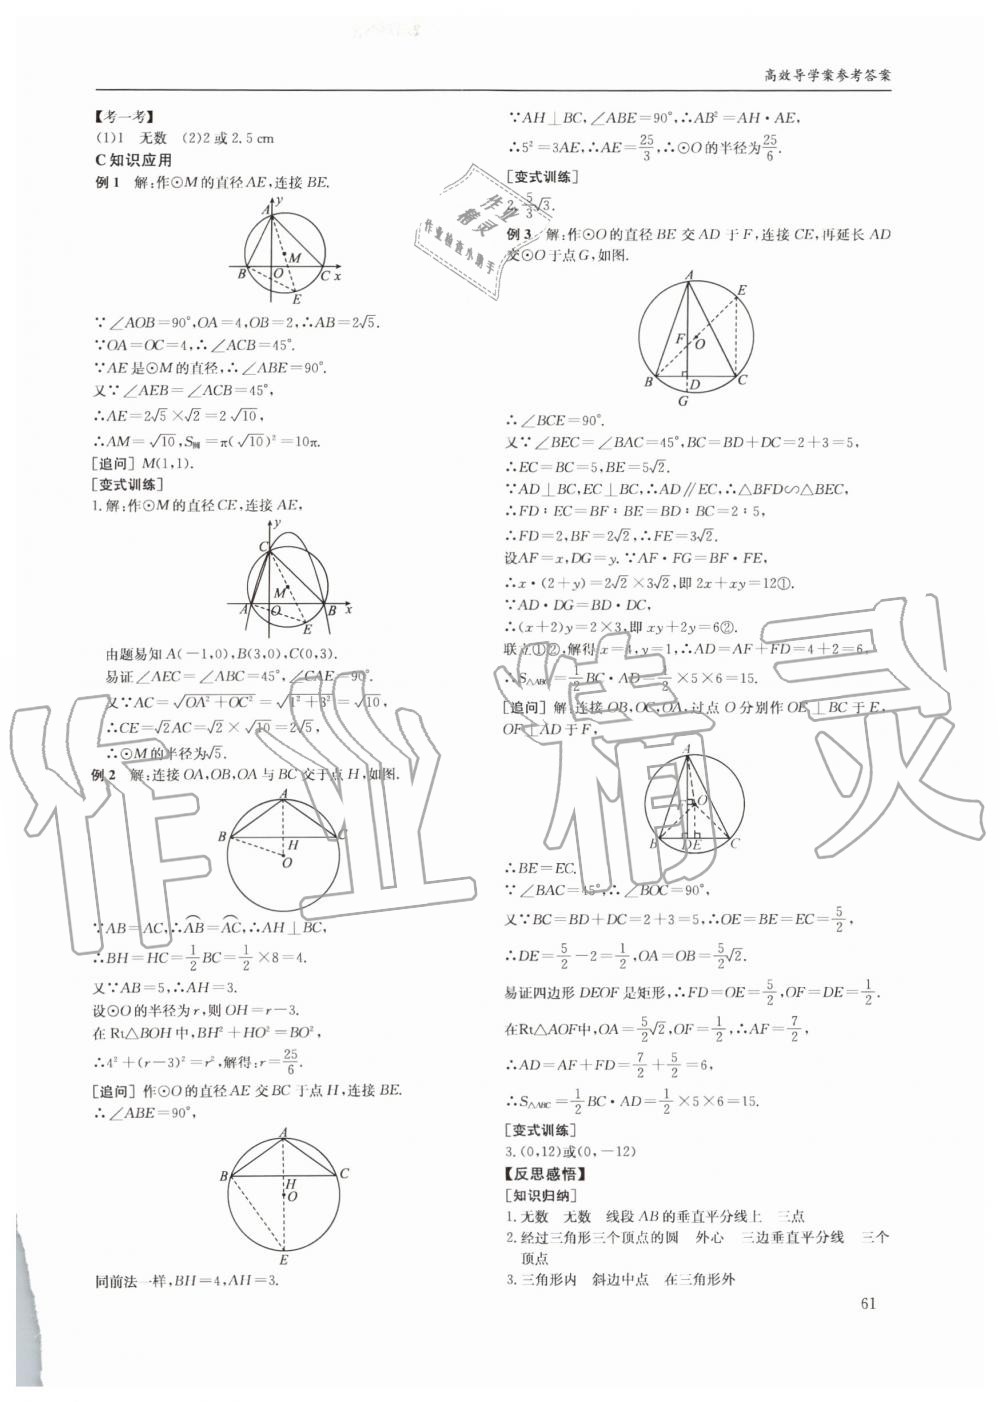 高效导学案参考答案
【考一考】
(1)1 无数 (2)2或2.5 cm
C 知识应用
例1 解:作⊙M的直径AE,连接BE.
y
A
M
B O C x
E
∵∠AOB=90°,OA=4,OB=2,∴AB=2√5.
∵OA=OC=4,∴∠ACB=45°.
∵AE是⊙M的直径,∴∠ABE=90°.
又∵∠AEB=∠ACB=45°,
∴AE=2√5×√2=2√10,
∴AM=√10,S圆=π(√10)²=10π.
[追问] M(1,1).
[变式训练]
1.解:作⊙M的直径CE,连接AE,
y
C
M
A O B x
E
由题易知A(-1,0),B(3,0),C(0,3).
易证∠AEC=∠ABC=45°,∠CAE=90°.
又∵AC=√OA²+OC²=√1²+3²=√10,
∴CE=√2AC=√2×√10=2√5,
∴⊙M的半径为√5.
例2 解:连接OA,OB,OA与BC交于点H,如图.
A
B C
H
O
∵AB=AC,∴AB=AC,∴AH⊥BC,
∴BH=HC=1/2BC=1/2×8=4.
又∵AB=5,∴AH=3.
设⊙O的半径为r,则OH=r-3.
在Rt△BOH中,BH²+HO²=BO²,
∴4²+(r-3)²=r²,解得:r=25/6.
[追问] 作⊙O的直径AE交BC于点H,连接BE.
∴∠ABE=90°,
A
B C
H
O
E
同前法一样,BH=4,AH=3.
∵AH⊥BC,∠ABE=90°,∴AB²=AH·AE,
∴5²=3AE,∴AE=25/3,∴⊙O的半径为25/6.
[变式训练]
2. 5/3√3.
例3 解:作⊙O的直径BE交AD于F,连接CE,再延长AD
交⊙O于点G,如图.
A
E
F O
B D C
G
∴∠BCE=90°.
又∵∠BEC=∠BAC=45°,BC=BD+DC=2+3=5,
∴EC=BC=5,BE=5√2.
∵AD⊥BC,EC⊥BC,∴AD∥EC,∴△BFD∽△BEC,
∴FD∶EC=BF∶BE=BD∶BC=2∶5,
∴FD=2,BF=2√2,∴FE=3√2.
设AF=x,DG=y.∵AF·FG=BF·FE,
∴x·(2+y)=2√2×3√2,即2x+xy=12①.
∵AD·DG=BD·DC,
∴(x+2)y=2×3,即xy+2y=6②.
联立①②,解得x=4,y=1,∴AD=AF+FD=4+2=6,
∴S△ABC=1/2BC·AD=1/2×5×6=15.
[追问] 解:连接OB,OC,OA,过点O分别作OE⊥BC于E,
OF⊥AD于F,
A
O
B D E C
∴BE=EC.
∵∠BAC=45°,∴∠BOC=90°,
又∵BC=BD+DC=2+3=5,∴OE=BE=EC=5/2,
∴DE=5/2-2=1/2,OA=OB=5/2√2.
易证四边形DEOF是矩形,∴FD=OE=5/2,OF=DE=1/2.
在Rt△AOF中,OA=5/2√2,OF=1/2,∴AF=7/2,
∴AD=AF+FD=7/2+5/2=6,
∴S△ABC=1/2BC·AD=1/2×5×6=15.
[变式训练]
3.(0,12)或(0,-12)
【反思感悟】
[知识归纳]
1.无数 无数 线段AB的垂直平分线上 三点
2.经过三角形三个顶点的圆 外心 三边垂直平分线 三个
顶点
3.三角形内 斜边中点 在三角形外
61
作业
精灵
作业检查小助手
作业精灵